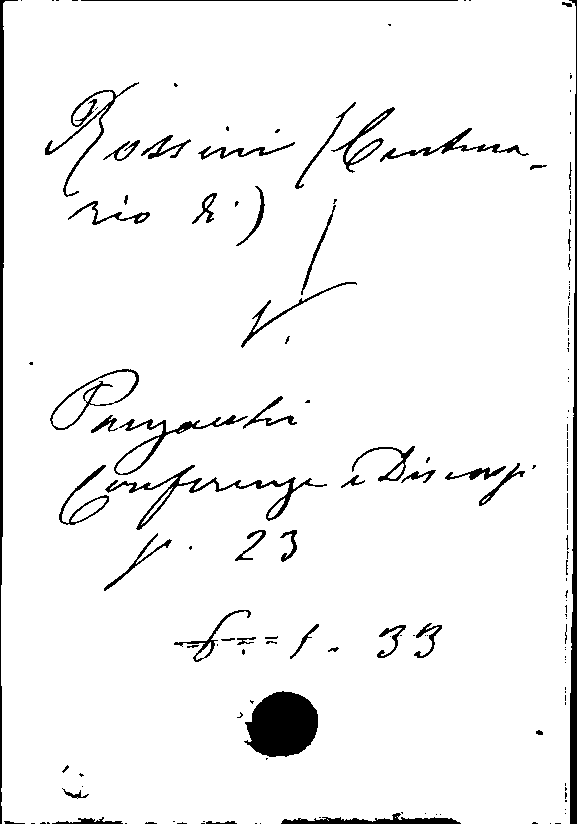 Rossini (Centena-
rio di)
V.
Panzacchi
Conferenze e Discorsi
p. 23
1. 33